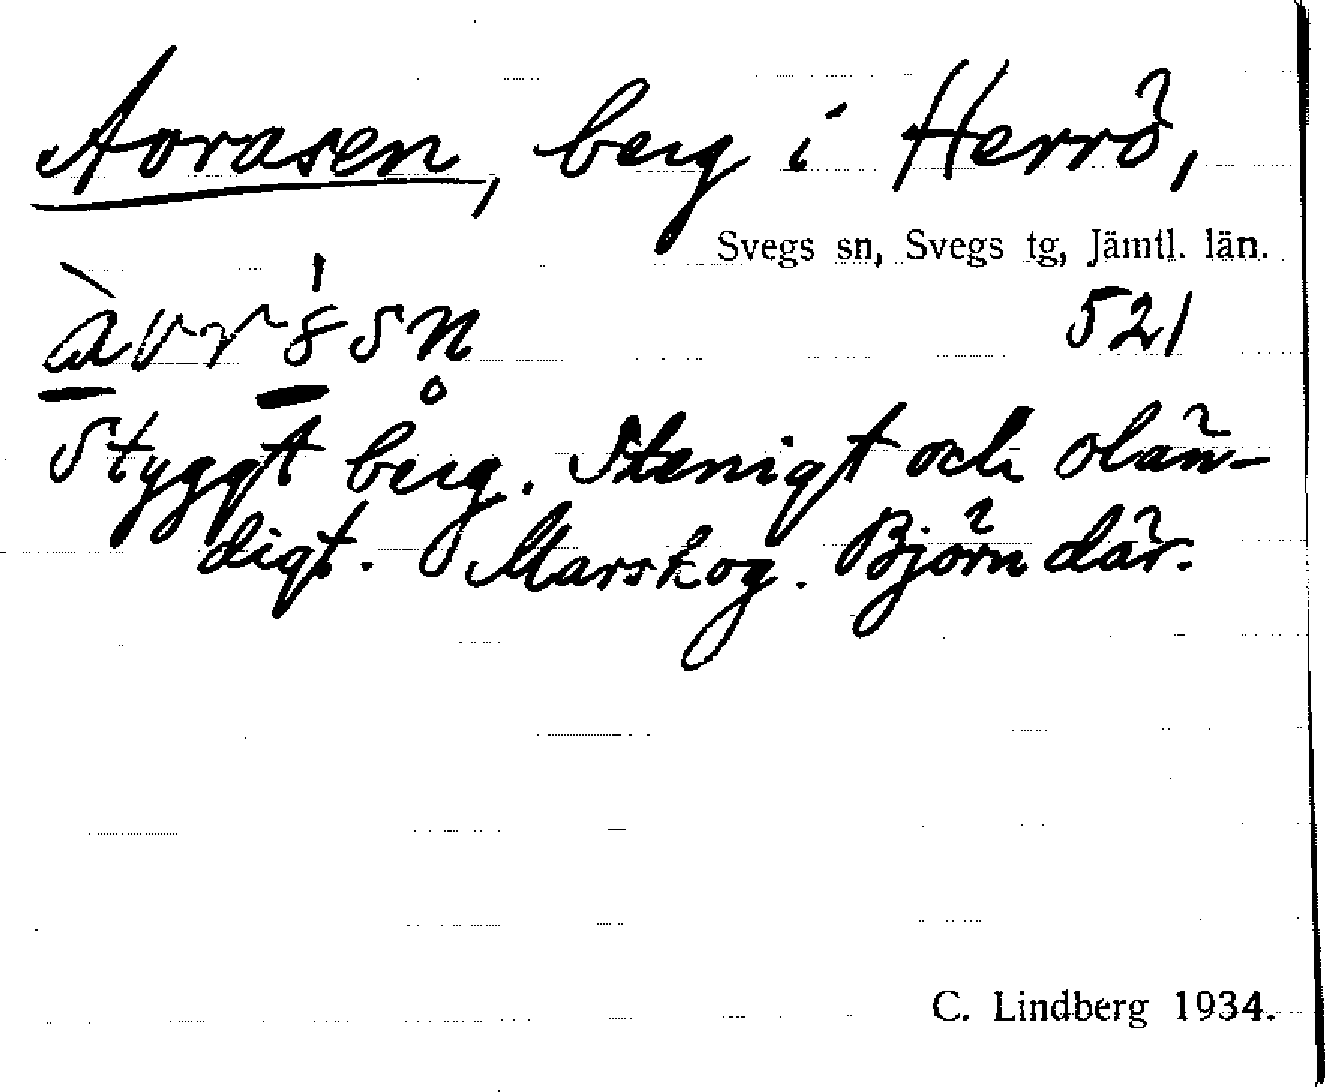 Aorasen, berg i Herrö,
Svegs sn, Svegs tg, Jämtl. län.
521
Styggt berg. Stenigt och olän-
digt. Marskog. Björn där.
C. Lindberg 1934.